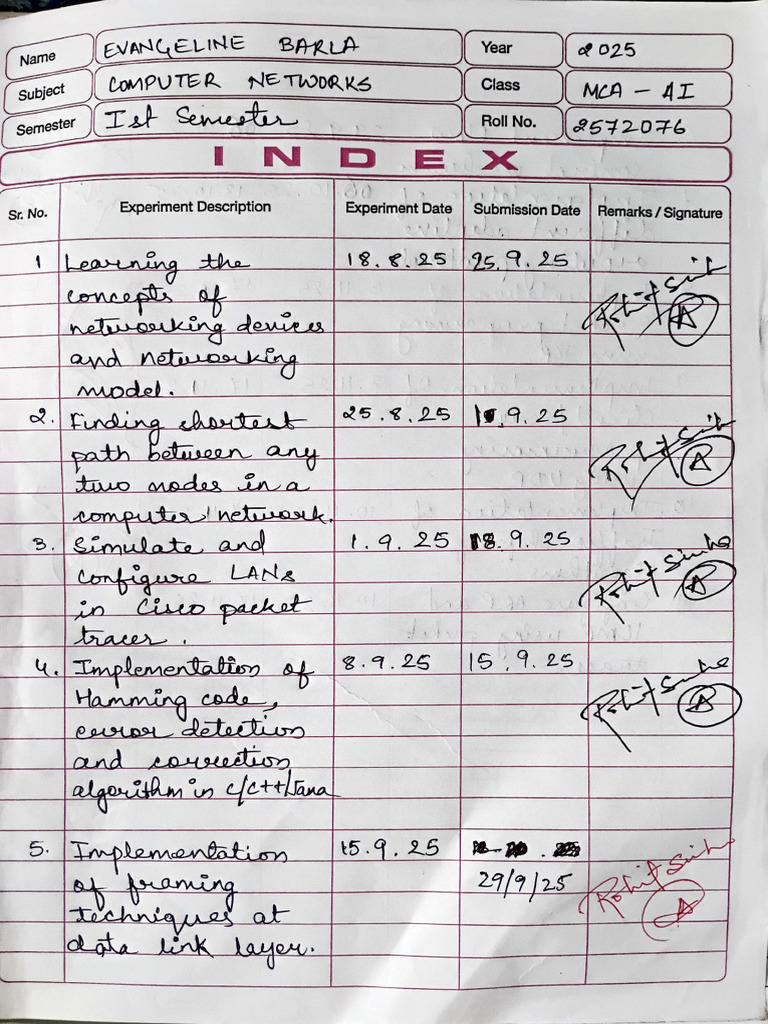 Name EVANGELINE BARLA Year 2025
Subject COMPUTER NETWORKS Class MCA - AI
Semester Ist Semester Roll No. 2572076
INDEX
Sr. No. Experiment Description Experiment Date Submission Date Remarks / Signature
1 Learning the 18.8.25 25.9.25
concepts of Rohit Sinh
networking devices A
and networking
model.
2. Finding shortest 25.8.25 .9.25
path between any Rohit Sinh
two nodes in a A
computer network.
3. Simulate and 1.9.25 18.9.25
configure LANs Rohit Sinha
in Cisco packet A
tracer.
4. Implementation of 8.9.25 15.9.25
Hamming code, Rohit Sinha
error detection A
and correction
algorithm in C/C++/Java
5. Implementation 15.9.25
of framing 29/9/25 Rohit Sinha
techniques at A
data link layer.